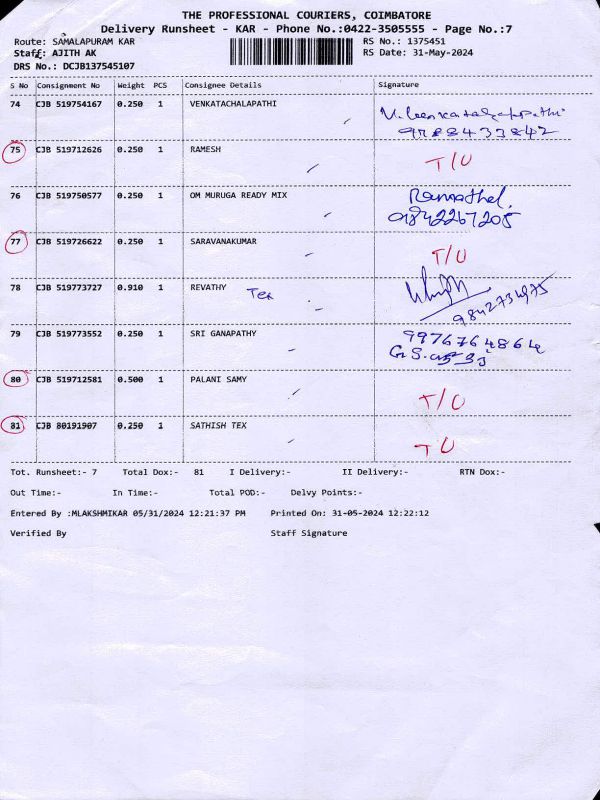 THE PROFESSIONAL COURIERS, COIMBATORE
Delivery Runsheet - KAR - Phone No.:0422-3505555 - Page No.:7
Route: SAMALAPURAM KAR RS No.: 1375451
Staff: AJITH AK RS Date: 31-May-2024
DRS No.: DCJB137545107
S No Consignment No Weight PCS Consignee Details Signature
74 CJB 519754167 0.250 1 VENKATACHALAPATHI V. Venkatachalapathi
9788433842
75 CJB 519712626 0.250 1 RAMESH T/U
76 CJB 519750577 0.250 1 OM MURUGA READY MIX
9842267205
77 CJB 519726622 0.250 1 SARAVANAKUMAR T/U
78 CJB 519773727 0.910 1 REVATHY Tex
9842734975
79 CJB 519773552 0.250 1 SRI GANAPATHY 9976764864
80 CJB 519712581 0.500 1 PALANI SAMY T/U
81 CJB 80191907 0.250 1 SATHISH TEX T U
Tot. Runsheet:- 7 Total Dox:- 81 I Delivery:- II Delivery:- RTN Dox:-
Out Time:- In Time:- Total POD:- Delvy Points:-
Entered By :MLAKSHMIKAR 05/31/2024 12:21:37 PM Printed On: 31-05-2024 12:22:12
Verified By Staff Signature